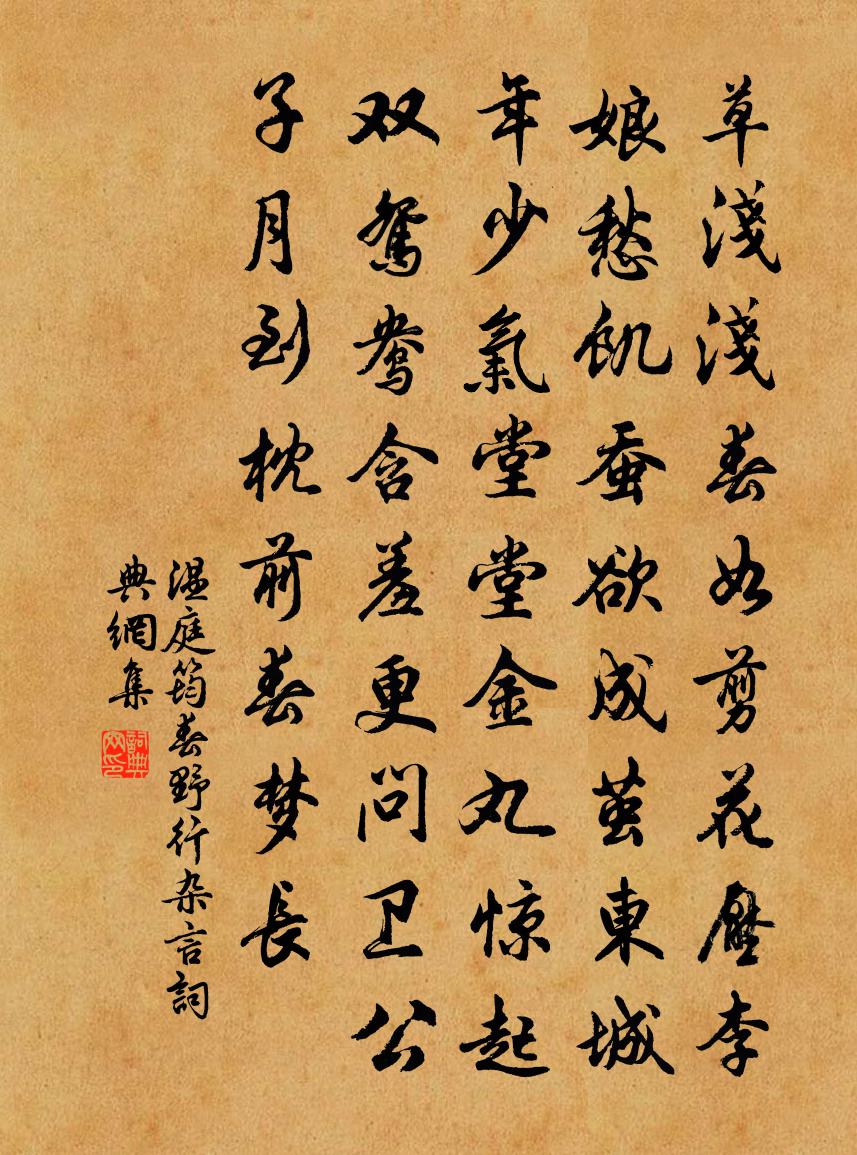 草淺淺春如剪花壓李
娘愁飢蚕欲成茧東城
年少氣堂堂金丸惊起
双鸳鸯含羞更问卫公
子月到枕前春梦長
温庭筠春野行杂言詞
典網集
詞典
网印